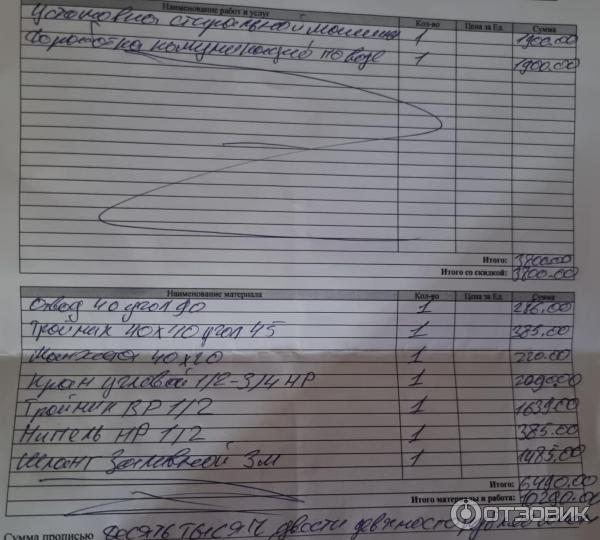 Наименование работ и услуг Кол-во Цена за Ед. Сумма
Установка стиральной машины 1 1900.00
Доработка комуникаций по воде 1 1900.00
Итого: 3800.00
Итого со скидкой: 3800.00
Наименование материала Кол-во Цена за Ед. Сумма
Отвод 40 угол 90 1 286.00
Тройник 40х40 угол 45 1 385.00
Манжета 40х20 1 220.00
Кран угловой 1/2-3/4 НР 1 2090.00
Тройник ВР 1/2 1 1639.00
Нипель НР 1/2 1 385.00
Шланг Заливной 3м 1 1485.00
Итого: 6490.00
Итого материалы и работа: 10290.00
Сумма прописью десять тысяч двести девяносто рублей
ОТЗОВИК